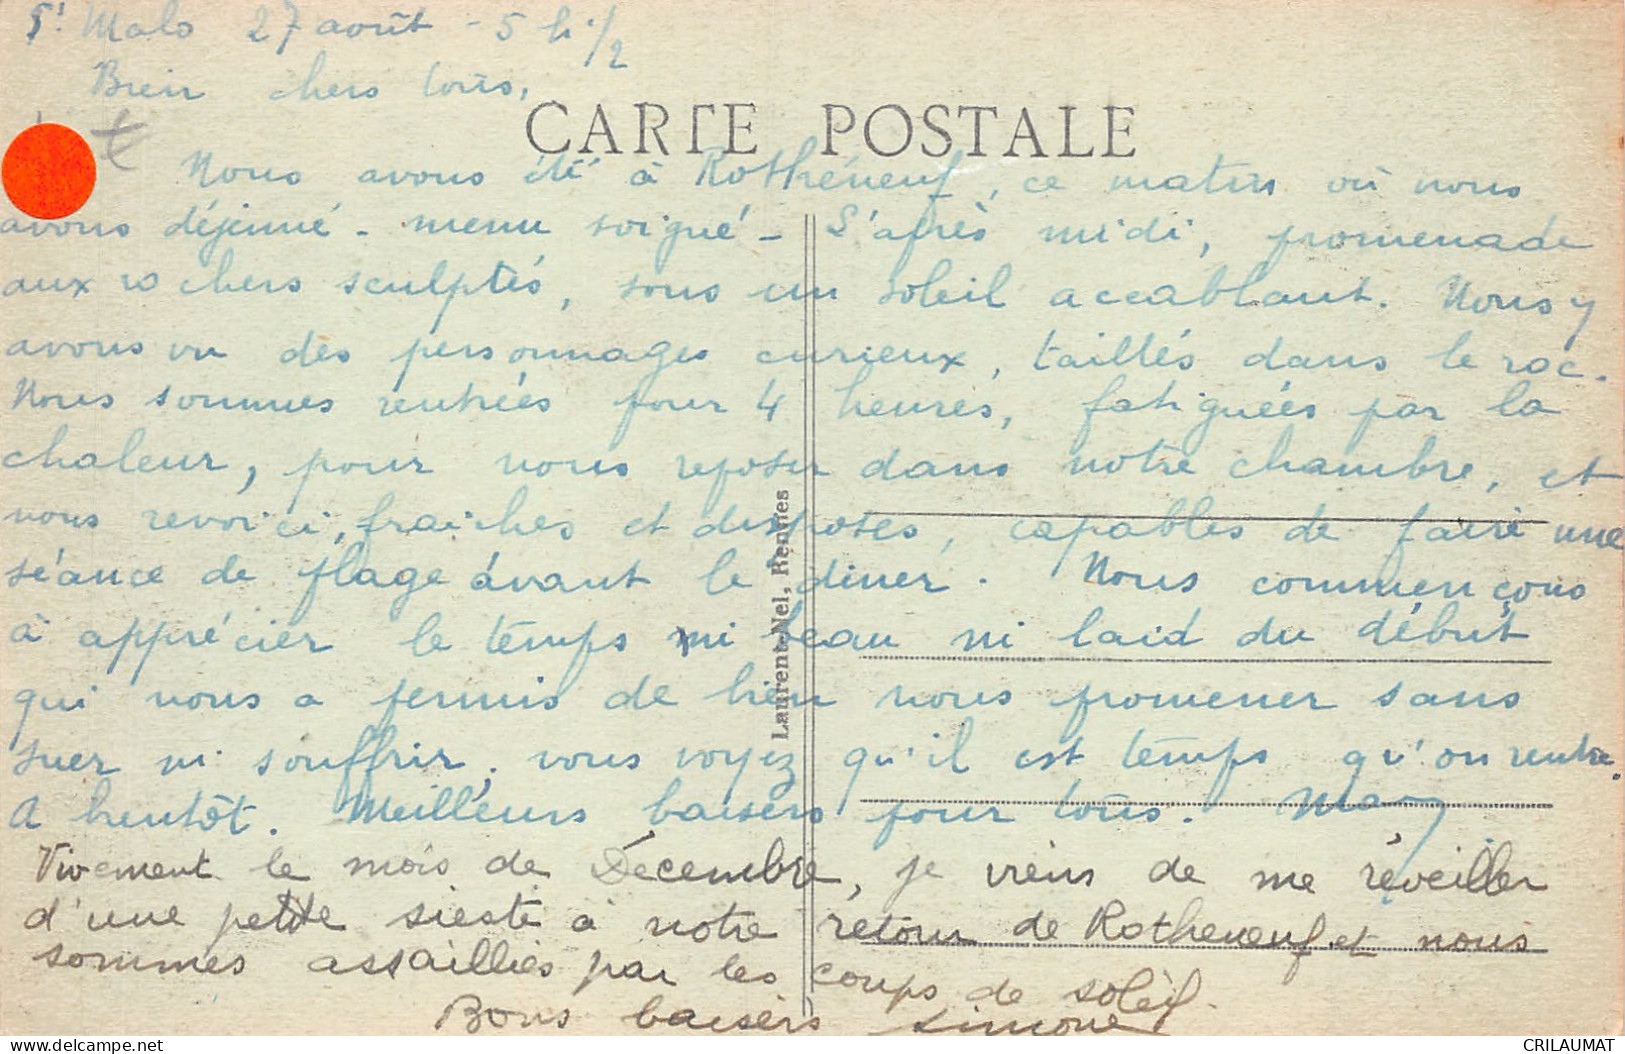 St Malo 27 août - 5 h 1/2
Bien chers tous,
CARTE POSTALE
Nous avons été à Rothéneuf, ce matin où nous
avons déjeuné - menu soigné - L'après midi, promenade
aux rochers sculptés, sous un soleil accablant. Nous y
avons vu des personnages curieux, taillés dans le roc.
Nous sommes rentrées pour 4 heures, fatiguées par la
chaleur, pour nous reposer dans notre chambre, et
nous revoici, fraiches et disposes, capables de faire une
séance de plage avant le diner. Nous commençons
à apprécier le temps ni beau ni laid du début
qui nous a permis de bien nous promener sans
suer ni souffrir. vous voyez qu'il est temps qu'on rentre.
A bientôt. Meilleurs baisers pour tous. Mary
Vivement le mois de Décembre, je viens de me réveiller
d'une petite sieste à notre retour de Rotheneuf et nous
sommes assaillies par les coups de soleil.
Bons baisers Simone
Laurent-Nel, Rennes
CRILAUMAT